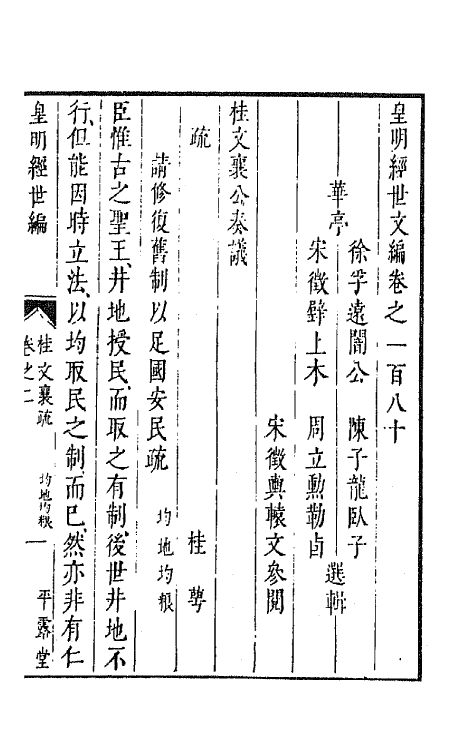 皇明經世文編卷之一百八十
華亭
徐孚遠闇公 陳子龍臥子
宋徵璧上木 周立勲勒卣
選輯
宋徵輿轅文參閱
桂文襄公奏議
疏 桂萼
請修復舊制以足國安民疏 均地均粮
臣惟古之聖王、井地授民、而取之有制、後世井地不
行、但能因時立法、以均取民之制而已、然亦非有仁
皇明經世編
桂文襄疏 均地均粮 一 平露堂